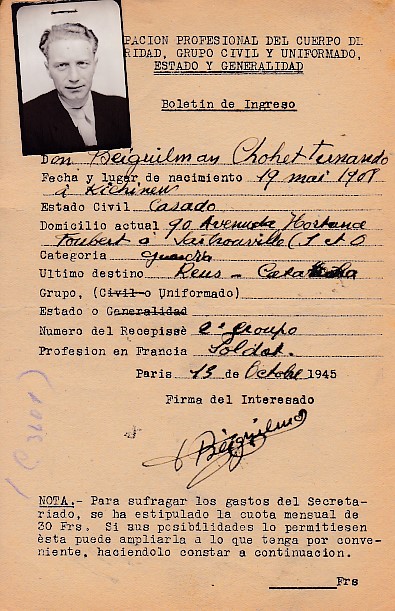 PACION PROFESIONAL DEL CUERPO DE
RIDAD, GRUPO CIVIL Y UNIFORMADO,
ESTADO Y GENERALIDAD
Boletin de Ingreso
Don Beiguilman Chohet Fernando
Fecha y lugar de nacimiento 19 mai 1908
à Kichinew
Estado Civil Casado
Domicilio actual 90 Avenuda Hortance
Foubert a Sartrouville (S et O
Categoria guardia
Ultimo destino Reus - Cataluña
Grupo, (Civil o Uniformado)
Estado o Generalidad
Numero del Recepissè 2e Groupo
Profesion en Francia Soldat.
Paris 15 de Octobre 1945
Firma del Interesado
Beiguilman
NOTA.- Para sufragar los gastos del Secreta-
riado, se ha estipulado la cuota mensual de
30 Frs. Si sus posibilidades lo permitiesen
èsta puede ampliarla a lo que tenga por conve-
niente, haciendolo constar a continuacion.
Frs